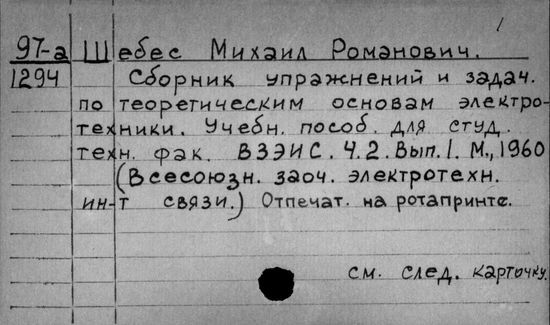 1
97-а Шебес Михаил Романович.
1294 Сборник упражнений и задач.
по теоретическим основам электро-
техники. Учебн. пособ. для студ.
техн. фак. ВЗЭИС. Ч.2. Вып.1. М., 1960
(Всесоюзн. заоч. электротехн.
ин-т связи.) Отпечат. на ротапринте.
см. след. карточку.